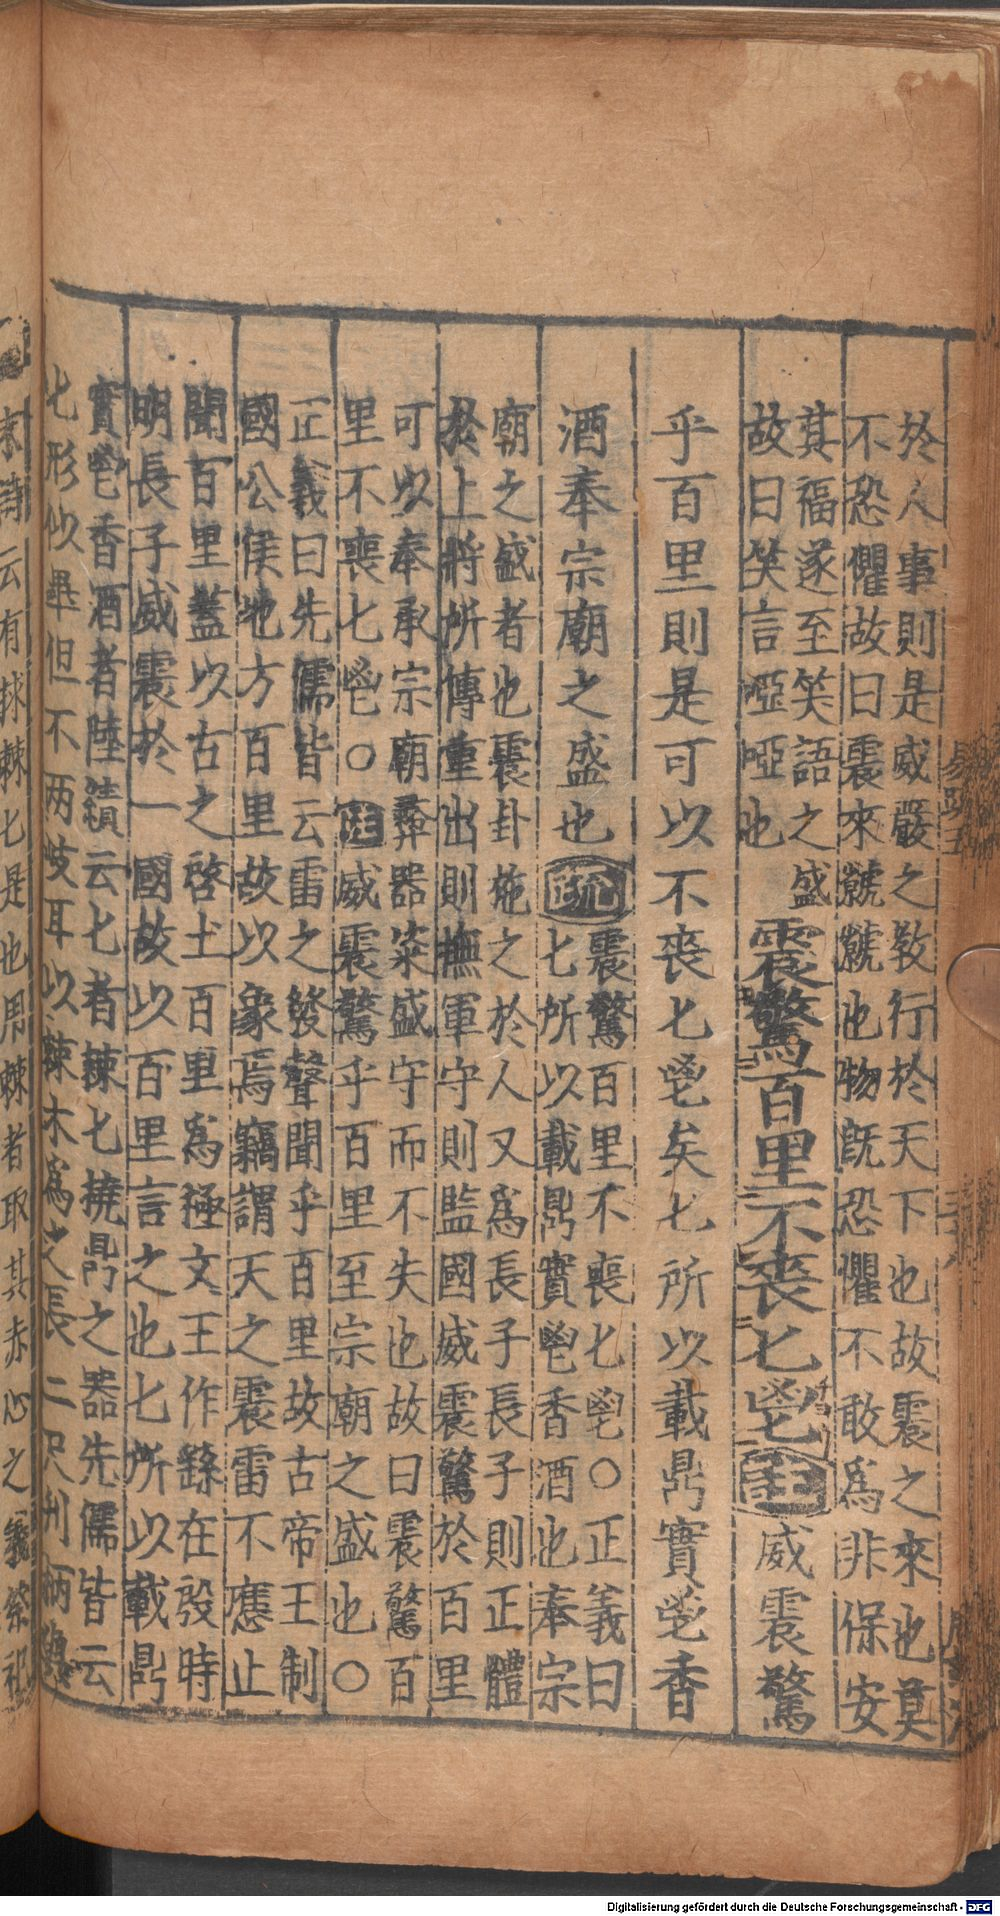 於人事則是威嚴之敎行於天下也故震之來也莫
不恐懼故曰震來虩虩也物旣恐懼不敢爲非保安
其福遂至笑語之盛
故曰笑言啞啞也
震驚百里不喪匕鬯 註 威震驚
乎百里則是可以不喪匕鬯矣匕所以載鼎實鬯香
酒奉宗廟之盛也 疏
震驚百里不喪匕鬯○正義曰
匕所以載鼎實鬯香酒也奉宗
廟之盛者也震卦施之於人又爲長子長子則正體
於上將所傳重出則撫軍守則監國威震驚於百里
可以奉承宗廟彞器粢盛守而不失也故曰震驚百
里不喪匕鬯○ 註 威震驚乎百里至宗廟之盛也○
正義曰先儒皆云雷之發聲聞乎百里故古帝王制
國公侯地方百里故以象焉竊謂天之震雷不應止
聞百里蓋以古之啓土百里爲極文王作繇在殷時
明長子威震於一國故以百里言之也匕所以載鼎
實鬯香酒者陸績云匕者棘匕撓鼎之器先儒皆云
匕形似畢但不兩歧耳以棘木爲之長二尺刋柄與
云有捄棘匕是也用棘者取其赤心之義祭祀
Digitalisierung gefördert durch die Deutsche Forschungsgemeinschaft - DFG